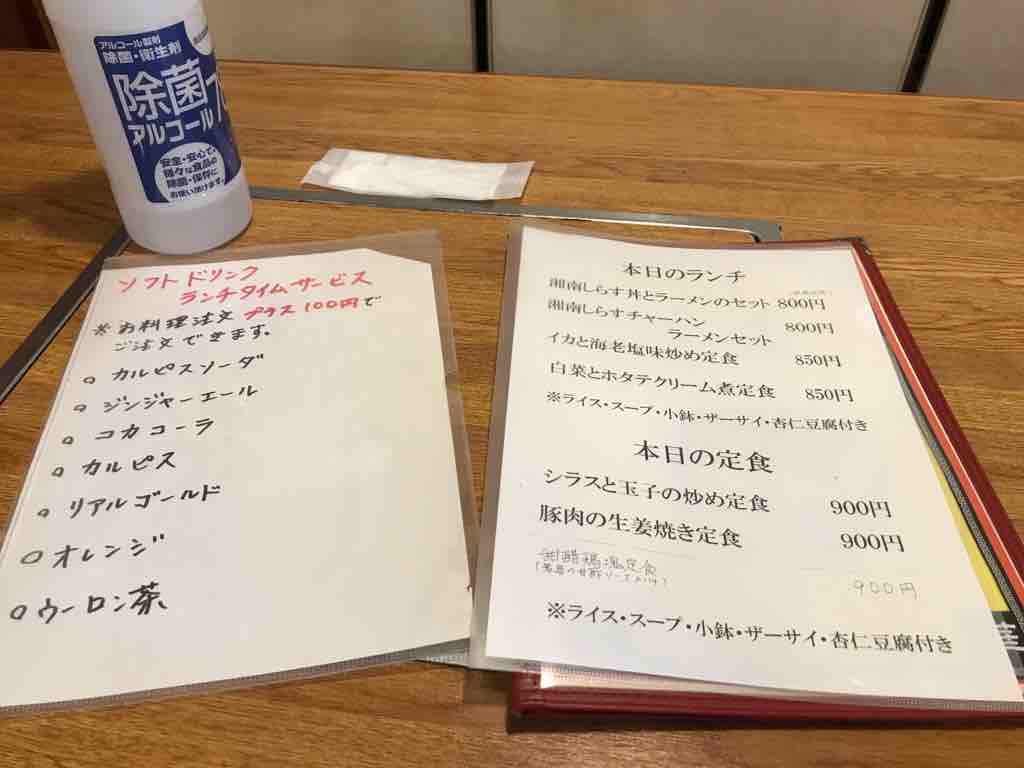 アルコール製剤
除菌・衛生剤
除菌
アルコール
安全・安心で、
様々な食品の
除菌・保存に
お使い頂けます。
ソフトドリンク
ランチタイムサービス
※お料理注文 プラス100円で
ご注文できます。
○ カルピスソーダ
○ ジンジャーエール
○ コカコーラ
○ カルピス
○ リアルゴールド
○ オレンジ
○ ウーロン茶
本日のランチ
湘南しらす丼とラーメンのセット 800円
湘南しらすチャーハン
ラーメンセット 800円
イカと海老塩味炒め定食 850円
白菜とホタテクリーム煮定食 850円
※ライス・スープ・小鉢・ザーサイ・杏仁豆腐付き
本日の定食
シラスと玉子の炒め定食 900円
豚肉の生姜焼き定食 900円
甜醋鶏塊定食 900円
※ライス・スープ・小鉢・ザーサイ・杏仁豆腐付き